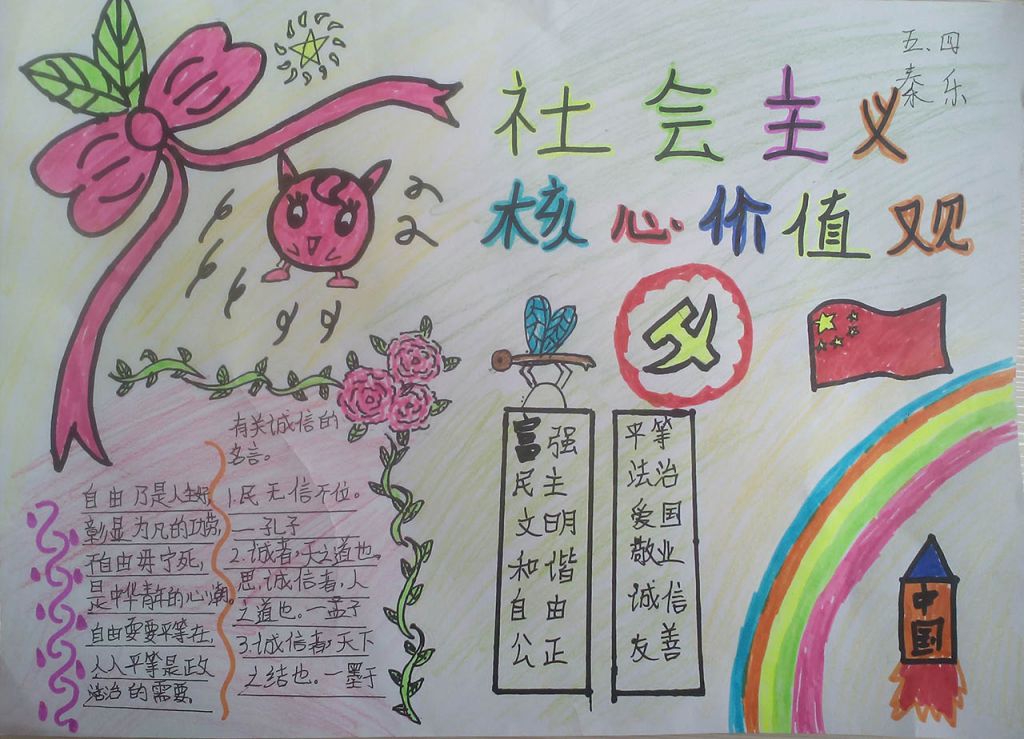 五.四
秦乐
社会主义
核心价值观
富强
民主
文明
和谐
自由
公正
平等
法治
爱国
敬业
诚信
友善
有关诚信的
名言。
1.民无信不位。
—孔子
2.诚者,天之道也,
思诚信者,人
之道也。—孟子
3.诚信者,天下
之结也。—墨于
自由乃是人生好
彰显为凡的功劳,
不自由毋宁死,
是中华青年的心潮。
自由需要平等在,
人人平等是政
法治的需要,
中国